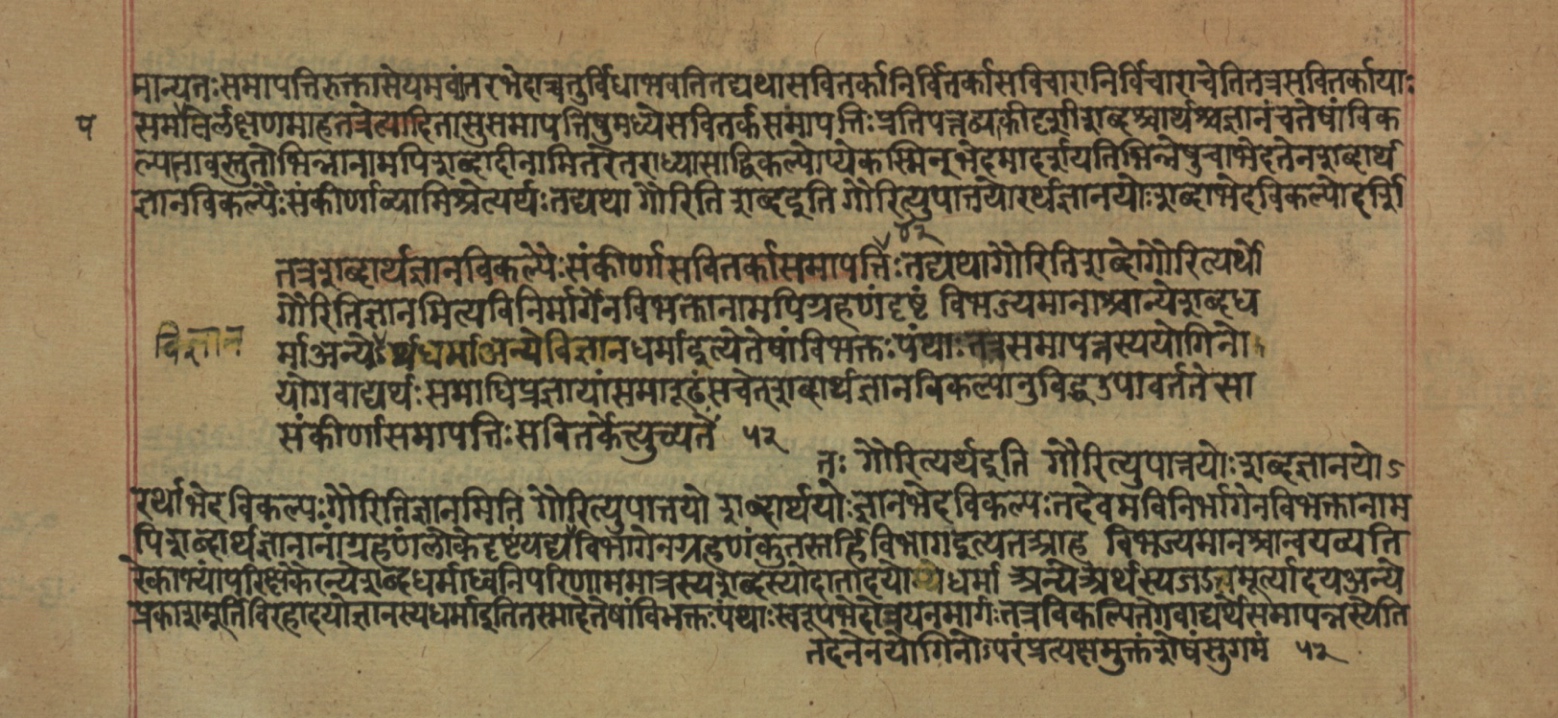 मान्यतः समापत्तिरुक्ता सेयमवांतरभेदाच्चतुर्विधा भवति तद्यथा सवितर्का निर्वितर्का सविचारा निर्विचारा चेति तत्र सवितर्कायाः
प
समापत्तेर्लक्षणमाह तत्रेत्यादि तासु समापत्तिषु मध्ये सवितर्कसमापत्तिः प्रतिपत्तव्या कीदृशी शब्दश्चार्थश्च ज्ञानं च तेषां विक
ल्पाना वस्तुतो भिन्नानामपि शब्दादीनामितरेतराध्यासाद्विकल्पोप्येकस्मिन् भेदमादर्शयति भिन्नेषु चाभेदं तेन शब्दार्थ
ज्ञानविकल्पैः संकीर्णा व्यामिश्रेत्यर्थः तद्यथा गौरिति शब्द इति गौरित्युपात्तयोरर्थज्ञानयोः शब्दाभेदविकल्पो दर्शि
४२
तत्र शब्दार्थज्ञानविकल्पैः संकीर्णा सवितर्का समापत्तिः तद्यथा गौरिति शब्दो गौरित्यर्थो
गौरिति ज्ञानमित्यविनिर्भागेन विभक्तानामपि ग्रहणं दृष्टं विभज्यमानाश्चान्ये शब्दध
विज्ञान
र्मा अन्येऽर्थधर्मा अन्ये विज्ञानधर्मा इत्येतेषां विभक्तः पंथाः तत्र समापन्नस्य योगिनो
यो गवाद्यर्थः समाधिप्रज्ञायां समारूढः स चेत् शब्दार्थज्ञानविकल्पानुविद्ध उपावर्तते सा
संकीर्णा समापत्तिः सवितर्केत्युच्यते ५२
तः गौरित्यर्थ इति गौरित्युपात्तयोः शब्दज्ञानयोऽ
रर्थाभेदविकल्पः गौरिति ज्ञानमिति गौरित्युपात्तयो शब्दार्थयोः ज्ञानभेदविकल्पः तदेवमविनिर्भागेन विभक्तानाम
पि शब्दार्थज्ञानानां ग्रहणं लोके दृष्टं यद्यविभागेन ग्रहणं कुतस्तर्हि विभाग इत्यत आह विभज्यमानश्चान्वयव्यति
रेकाभ्यां परिक्षकैरन्ये शब्दधर्मा ध्वनिपरिणाममात्रस्य शब्दस्योदातादयो धर्मा अन्ये अर्थस्य जडत्वमूर्त्यादय अन्ये
प्रकाशमूर्तिविरहादयो ज्ञानस्य धर्मा इति तस्मादेतेषां विभक्तः पंथाः स्वरूपभेदोन्नयनमार्गः तत्र विकल्पिते गवाद्यर्थे समापन्नस्येति
तदनेन योगिनोऽपरं प्रत्यक्षमुक्तं शेषं सुगमं ५२